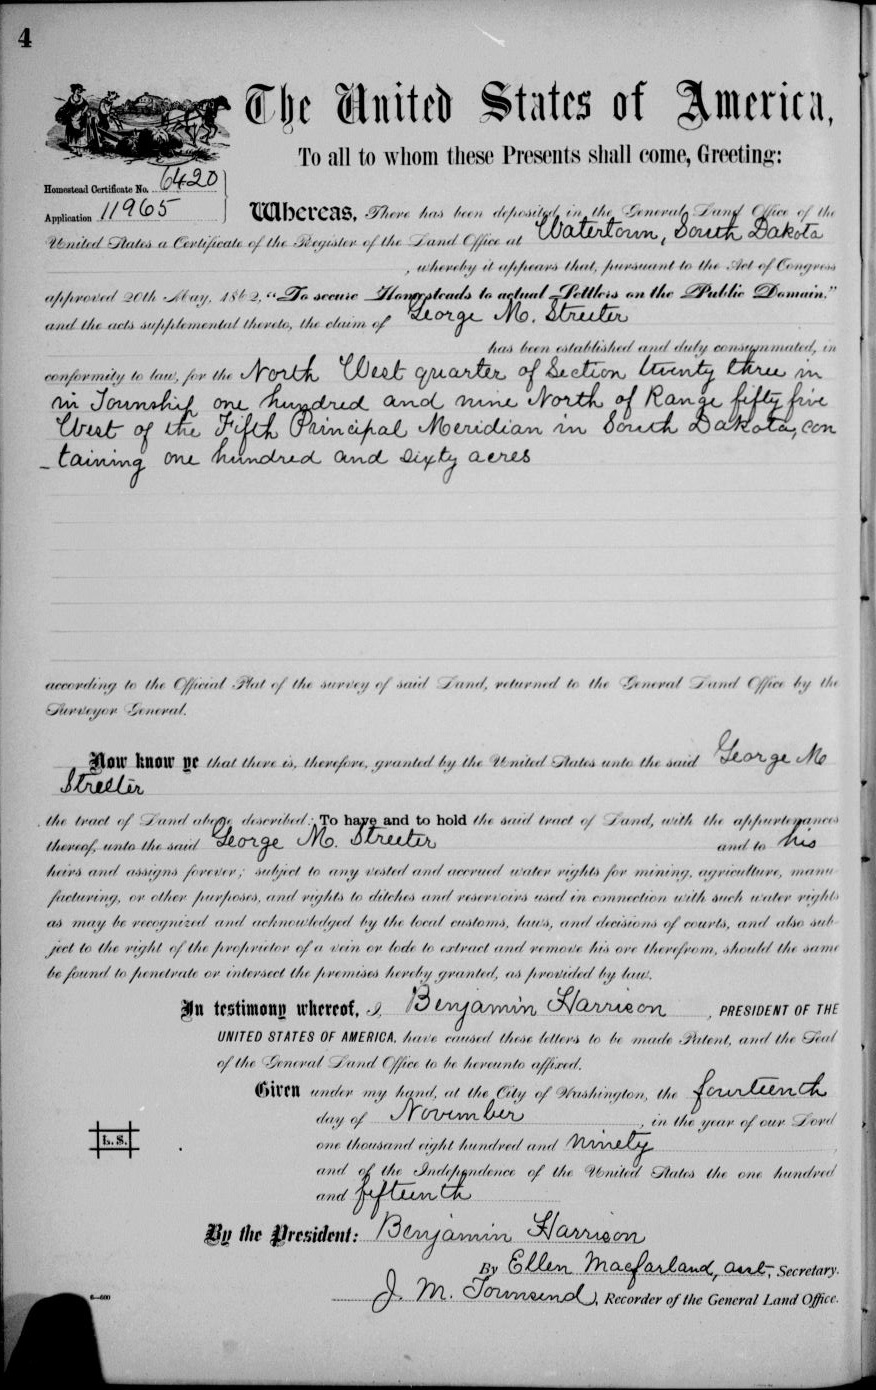 4
The United States of America,
To all to whom these Presents shall come, Greeting:
Homestead Certificate No. 6420
Application 11965
Whereas, There has been deposited in the General Land Office of the
United States a Certificate of the Register of the Land Office at Watertown, South Dakota
, whereby it appears that, pursuant to the Act of Congress
approved 20th May, 1862, "To secure Homesteads to actual Settlers on the Public Domain,"
and the acts supplemental thereto, the claim of George M. Streeter
has been established and duly consummated, in
conformity to law, for the North West quarter of Section twenty three in
in Township one hundred and nine North of Range fifty five
West of the Fifth Principal Meridian in South Dakota, con
-taining one hundred and sixty acres
according to the Official Plat of the survey of said Land, returned to the General Land Office by the
Surveyor General.
Now know ye that there is, therefore, granted by the United States unto the said George M
Streeter
the tract of Land above described; To have and to hold the said tract of Land, with the appurtenances
thereof, unto the said George M. Streeter and to his
heirs and assigns forever; subject to any vested and accrued water rights for mining, agriculture, manu-
facturing, or other purposes, and rights to ditches and reservoirs used in connection with such water rights
as may be recognized and acknowledged by the local customs, laws, and decisions of courts, and also sub-
ject to the right of the proprietor of a vein or lode to extract and remove his ore therefrom, should the same
be found to penetrate or intersect the premises hereby granted, as provided by law.
In testimony whereof, I, Benjamin Harrison, PRESIDENT OF THE
UNITED STATES OF AMERICA, have caused these letters to be made Patent, and the Seal
of the General Land Office to be hereunto affixed.
Given under my hand, at the City of Washington, the fourteenth
day of November, in the year of our Lord
one thousand eight hundred and ninety
L. S.
and of the Independence of the United States the one hundred
and fifteenth
By the President: Benjamin Harrison
By Ellen Macfarland, asst, Secretary.
J. M. Townsend, Recorder of the General Land Office.
6—600